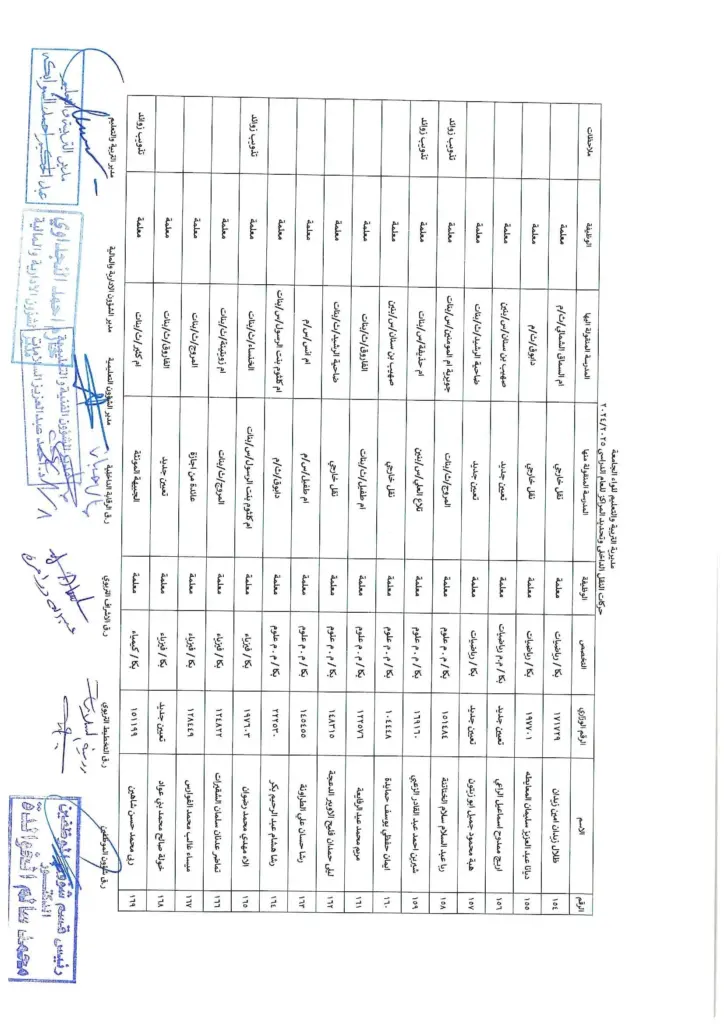 مديرية التربية والتعليم للواء الجامعة
حركات النقل الداخلي وتحديد المراكز للعام الدراسي ٢٠٢٤/٢٠٢٥
الرقم الاسم الرقم الوزاري التخصص الوظيفة المدرسة المنقولة منها المدرسة المنقولة اليها الوظيفة ملاحظات
١٥٤ طلال زيدان امين زيدان ١٧١٧٢٩ بكا / رياضيات معلمة نقل خارجي ام السماق الشمالي/ث/م معلمة
١٥٥ ديانا عبد العزيز سليمان المعايطه ١٩٧٧٠١ بكا / رياضيات معلمة نقل خارجي دابوق/ث/م معلمة
١٥٦ اريج ممدوح اسماعيل الراعي تعيين جديد بكا / م.م رياضيات معلمة تعيين جديد صهيب بن سنان/س/بنين معلمة
١٥٧ هبة محمود جميل ابو زيتون تعيين جديد بكا / رياضيات معلمة تعيين جديد ضاحية الرشيد/ث/بنات معلمة
١٥٨ ربا عبد السلام سلام الختاتنة ١٥١٤٨٤ بكا / م . م علوم معلمة المروج/ث/بنات جويرية ام المومنين/س/بنات معلمة تذويب زوائد
١٥٩ شيرين احمد عبد القادر الزعبي ١٦٩١٦٠ بكا / م . م علوم معلمة تلاع العلي/س/بنين ام حذيفة/س/بنات معلمة تذويب زوائد
١٦٠ ايمان حفظي يوسف حمايدة ١٠٤٤٤٨ بكا / م . م علوم معلمة نقل خارجي صهيب بن سنان/س/بنين معلمة
١٦١ مريم محمد عبد الرفايعة ١٢٢٥٧٦ بكا / م . م علوم معلمة ام طفيل/ث/بنات الفاروق/ث/بنات معلمة
١٦٢ ليلى حمدان فليح الاوبير الدعجة ١٤٨٣١٥ بكا / م . م علوم معلمة نقل خارجي ضاحية الرشيد/ث/بنات معلمة
١٦٣ رشا حسان علي الطراونة ١٤٥٤٥٥ بكا / م . م علوم معلمة ام طفيل/س/م ام انس/س/م معلمة
١٦٤ رشا هشام عبد الرحيم بكر ٢٢٢٥٣٠ بكا / م . م علوم معلمة دابوق/ث/م ام كلثوم بنت الرسول/س/بنات معلمة
١٦٥ الاء مهدي محمد رضوان ١٩٧٦٠٣ بكا / فيزياء معلمة ام كلثوم بنت الرسول/س/بنات الخنساء/ث/بنات معلمة تذويب زوائد
١٦٦ تماضر عدنان سلمان الشقيرات ١٢٤٨٢٢ بكا / فيزياء معلمة المروج/ث/بنات ام زويتينة/ث/بنات معلمة
١٦٧ ميساء غالب محمد الفوارس ١٢٨٤٤٩ بكا / فيزياء معلمة عائدة من اجازة المروج/ث/بنات معلمة
١٦٨ خولة صالح محمد بني عواد تعيين جديد بكا / فيزياء معلمة تعيين جديد الفاروق/ث/بنات معلمة
١٦٩ ربى محمد حسن شاهين ١٥١١٩٩ بكا / كيمياء معلمة الجبيهة المونثة ام كثير/ث/بنات معلمة تذويب زوائد
ر.ق شؤون الموظفين ر.ق التخطيط التربوي ر.ق الاشراف التربوي ر.ق الرقابة الداخلية مدير الشؤون التعليمية مدير الشؤون الادارية والمالية مدير التربية والتعليم
رئيس قسم شؤون الموظفين
الدكتور
محمد سالم الخوالدة
مدير الشؤون الفنية والتعليمية
احمد عبدالعزيز السلامات
احمد النجداوي
الشؤون الادارية والمالية
مدير التربية والتعليم